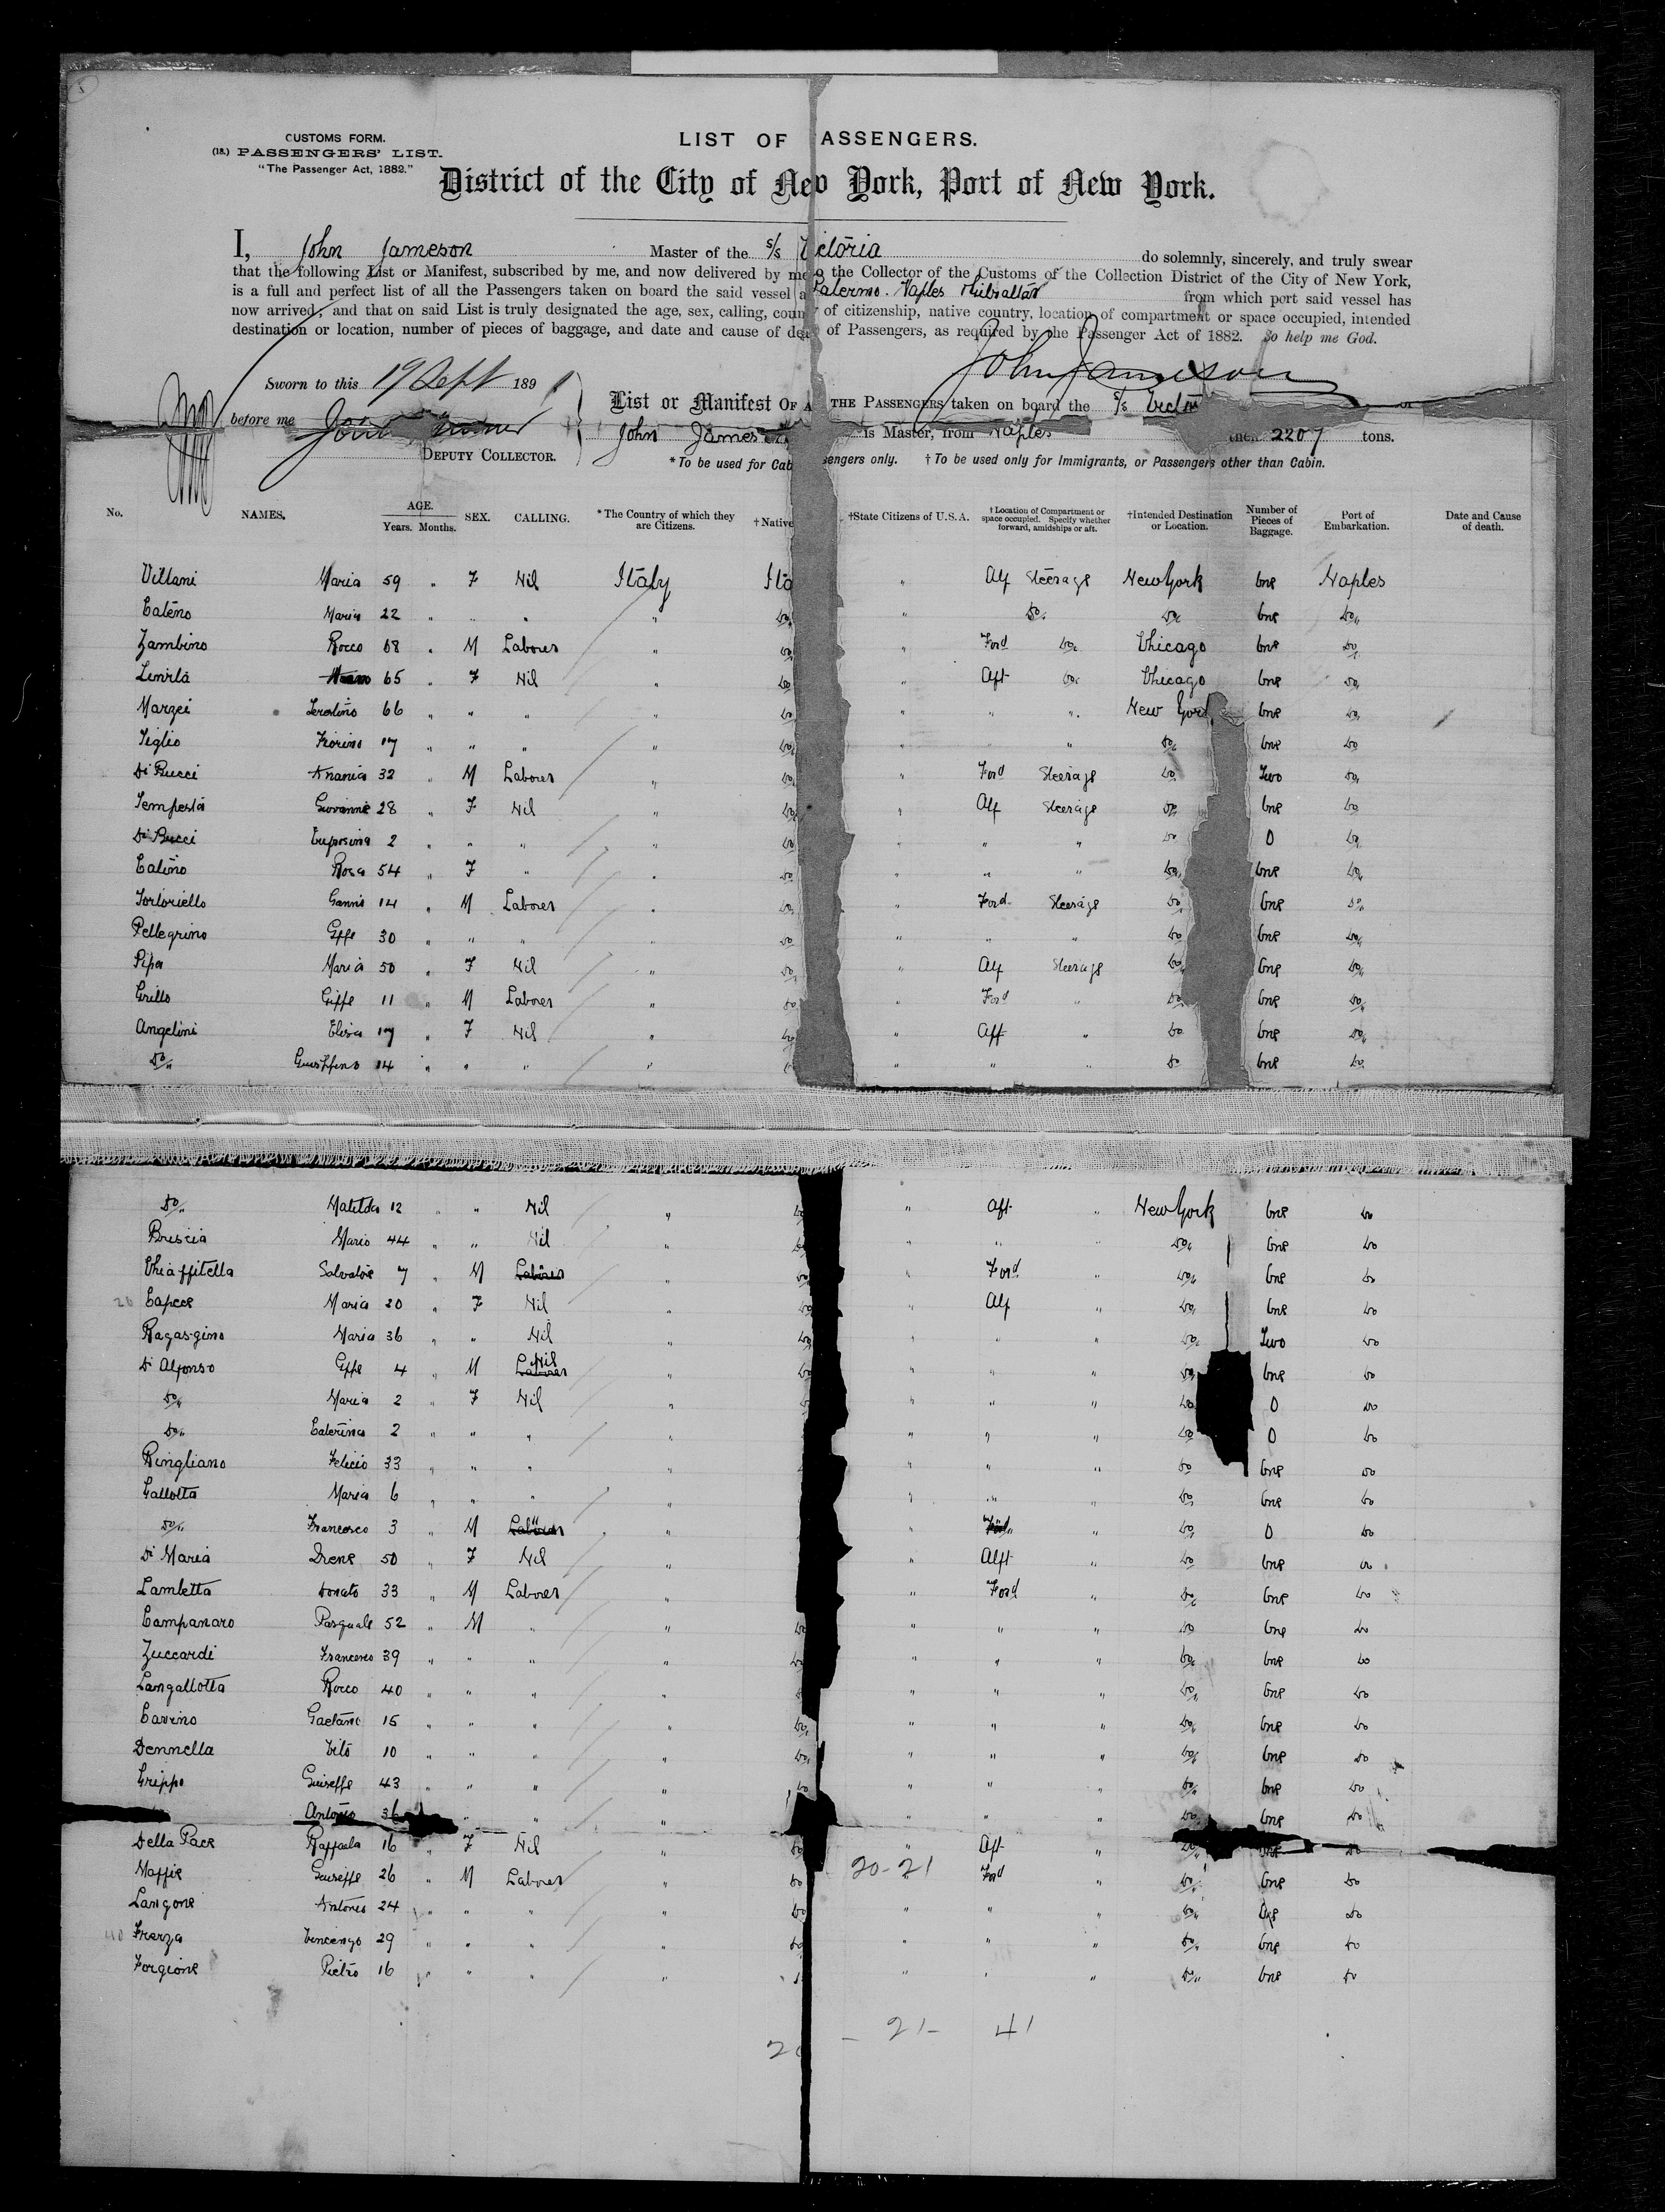 CUSTOMS FORM.
(18.) PASSENGERS' LIST.
"The Passenger Act, 1882."
LIST OF ASSENGERS.
District of the City of New York, Port of New York.
I, John Jameson Master of the s/s Victoria do solemnly, sincerely, and truly swear
that the following List or Manifest, subscribed by me, and now delivered by me the Collector of the Customs of the Collection District of the City of New York,
is a full and perfect list of all the Passengers taken on board the said vessel a Palermo. Naples Gibraltar from which port said vessel has
now arrived; and that on said List is truly designated the age, sex, calling, coun of citizenship, native country, location of compartment or space occupied, intended
destination or location, number of pieces of baggage, and date and cause of de of Passengers, as required by the Passenger Act of 1882. So help me God.
John Jameson
Sworn to this 19 Sept 189 1
before me
DEPUTY COLLECTOR.
List or Manifest OF A THE PASSENGERS taken on board the s/s Victo
John James is Master, from Naples 2207 tons.
*To be used for Cab sengers only. †To be used only for Immigrants, or Passengers other than Cabin.
No. NAMES. AGE. Years. Months. SEX. CALLING. *The Country of which they are Citizens. †Native †State Citizens of U.S.A. †Location of Compartment or space occupied. Specify whether forward, amidships or aft. †Intended Destination or Location. Number of Pieces of Baggage. Port of Embarkation. Date and Cause of death.
Villani Maria 59 " F Nil Italy Ita " Aft Steerage New York One Naples
Cateno Maria 22 " " " " Do " Do Do One Do
Zambino Rocco 68 " M Labourer " Do " Ford Do Chicago One Do
65 " F Nil " Do " Aft Do Chicago One Do
Marzei 66 " " " " Do " " " New York One Do
Fiorino 17 " " " " Do " " " Do One Do
Di Bucci Anania 32 " M Labourer " Do " Ford Steerage Do Two Do
Tempesta Giovannie 28 " F Nil " Do " Aft Steerage Do One Do
Di Bucci 2 " " " " Do " " " Do 0 Do
Catino Rosa 54 " F " " Do " " " Do One Do
Tortoriello 14 " M Labourer " Do " Ford Steerage Do One Do
Pellegrino Gffe 30 " " " " Do " " " Do One Do
Pipa Maria 50 " F Nil " Do " Aft Steerage Do One Do
Grillo Giffe 11 " M Labourer " Do " Ford " Do One Do
Angelini Elisa 17 " F Nil " Do " Aft " Do One Do
Do 14 " " " " " " " Do One Do
Do Matilda 12 " " Nil " Do " Aft " New York One Do
Brescia Maria 44 " " Nil " Do " " " Do One Do
Chiaffitella Salvatore 7 " M Labourer " Do " Ford " Do One Do
Capece Maria 20 " F Nil " Do " Aft " Do One Do
Maria 36 " " Nil " Do " " " Do Two Do
Di Alfonso Gffe 4 " M Labourer Nil " Do " " " Do One Do
Do Maria 2 " F Nil " " " " Do 0 Do
Do Caterina 2 " " " " " " " Do 0 Do
Ringliano Felicio 33 " " " " " " " Do One Do
Gallotta Maria 6 " " " " " " " Do One Do
Do Francesco 3 " M Labourer " " Ford " Do 0 Do
Di Maria Irene 50 " F Nil " " Aft " Do One Do
Lambetta Donato 33 " M Labourer " " Ford " Do One Do
Campanaro Pasquale 52 " M " " Do " " " Do One Do
Zuccardi Francesco 39 " " " " Do " " " Do One Do
Langallotta Rocco 40 " " " " " " " Do One Do
Gaetano 15 " " " " Do " " " Do One Do
Dennella Vito 10 " " " " Do " " " Do One Do
Grippo Guiseffe 43 " " " " Do " " " Do One Do
Antonio 36 " " " " " " " Do One Do
Della Pace Raffaela 16 " F Nil " Do " Aft " Do One Do
Maffie Guiseffe 26 " M Labourer " Do 20-21 Ford " Do One Do
Langone Antonio 24 " " " " Do " " " Do One Do
Vincenzo 29 " " " " Do " " " Do One Do
Forgione Pietro 16 " " " " " " " Do One Do
2 - 21- 41